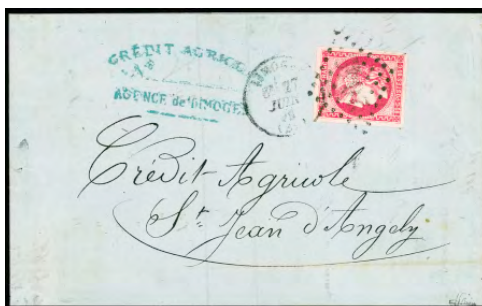 CRÉDIT AGRICOLE
AGENCE de LIMOGES
LIMOGES
27
JUIN
Crédit-Agricole
St Jean d'Angely